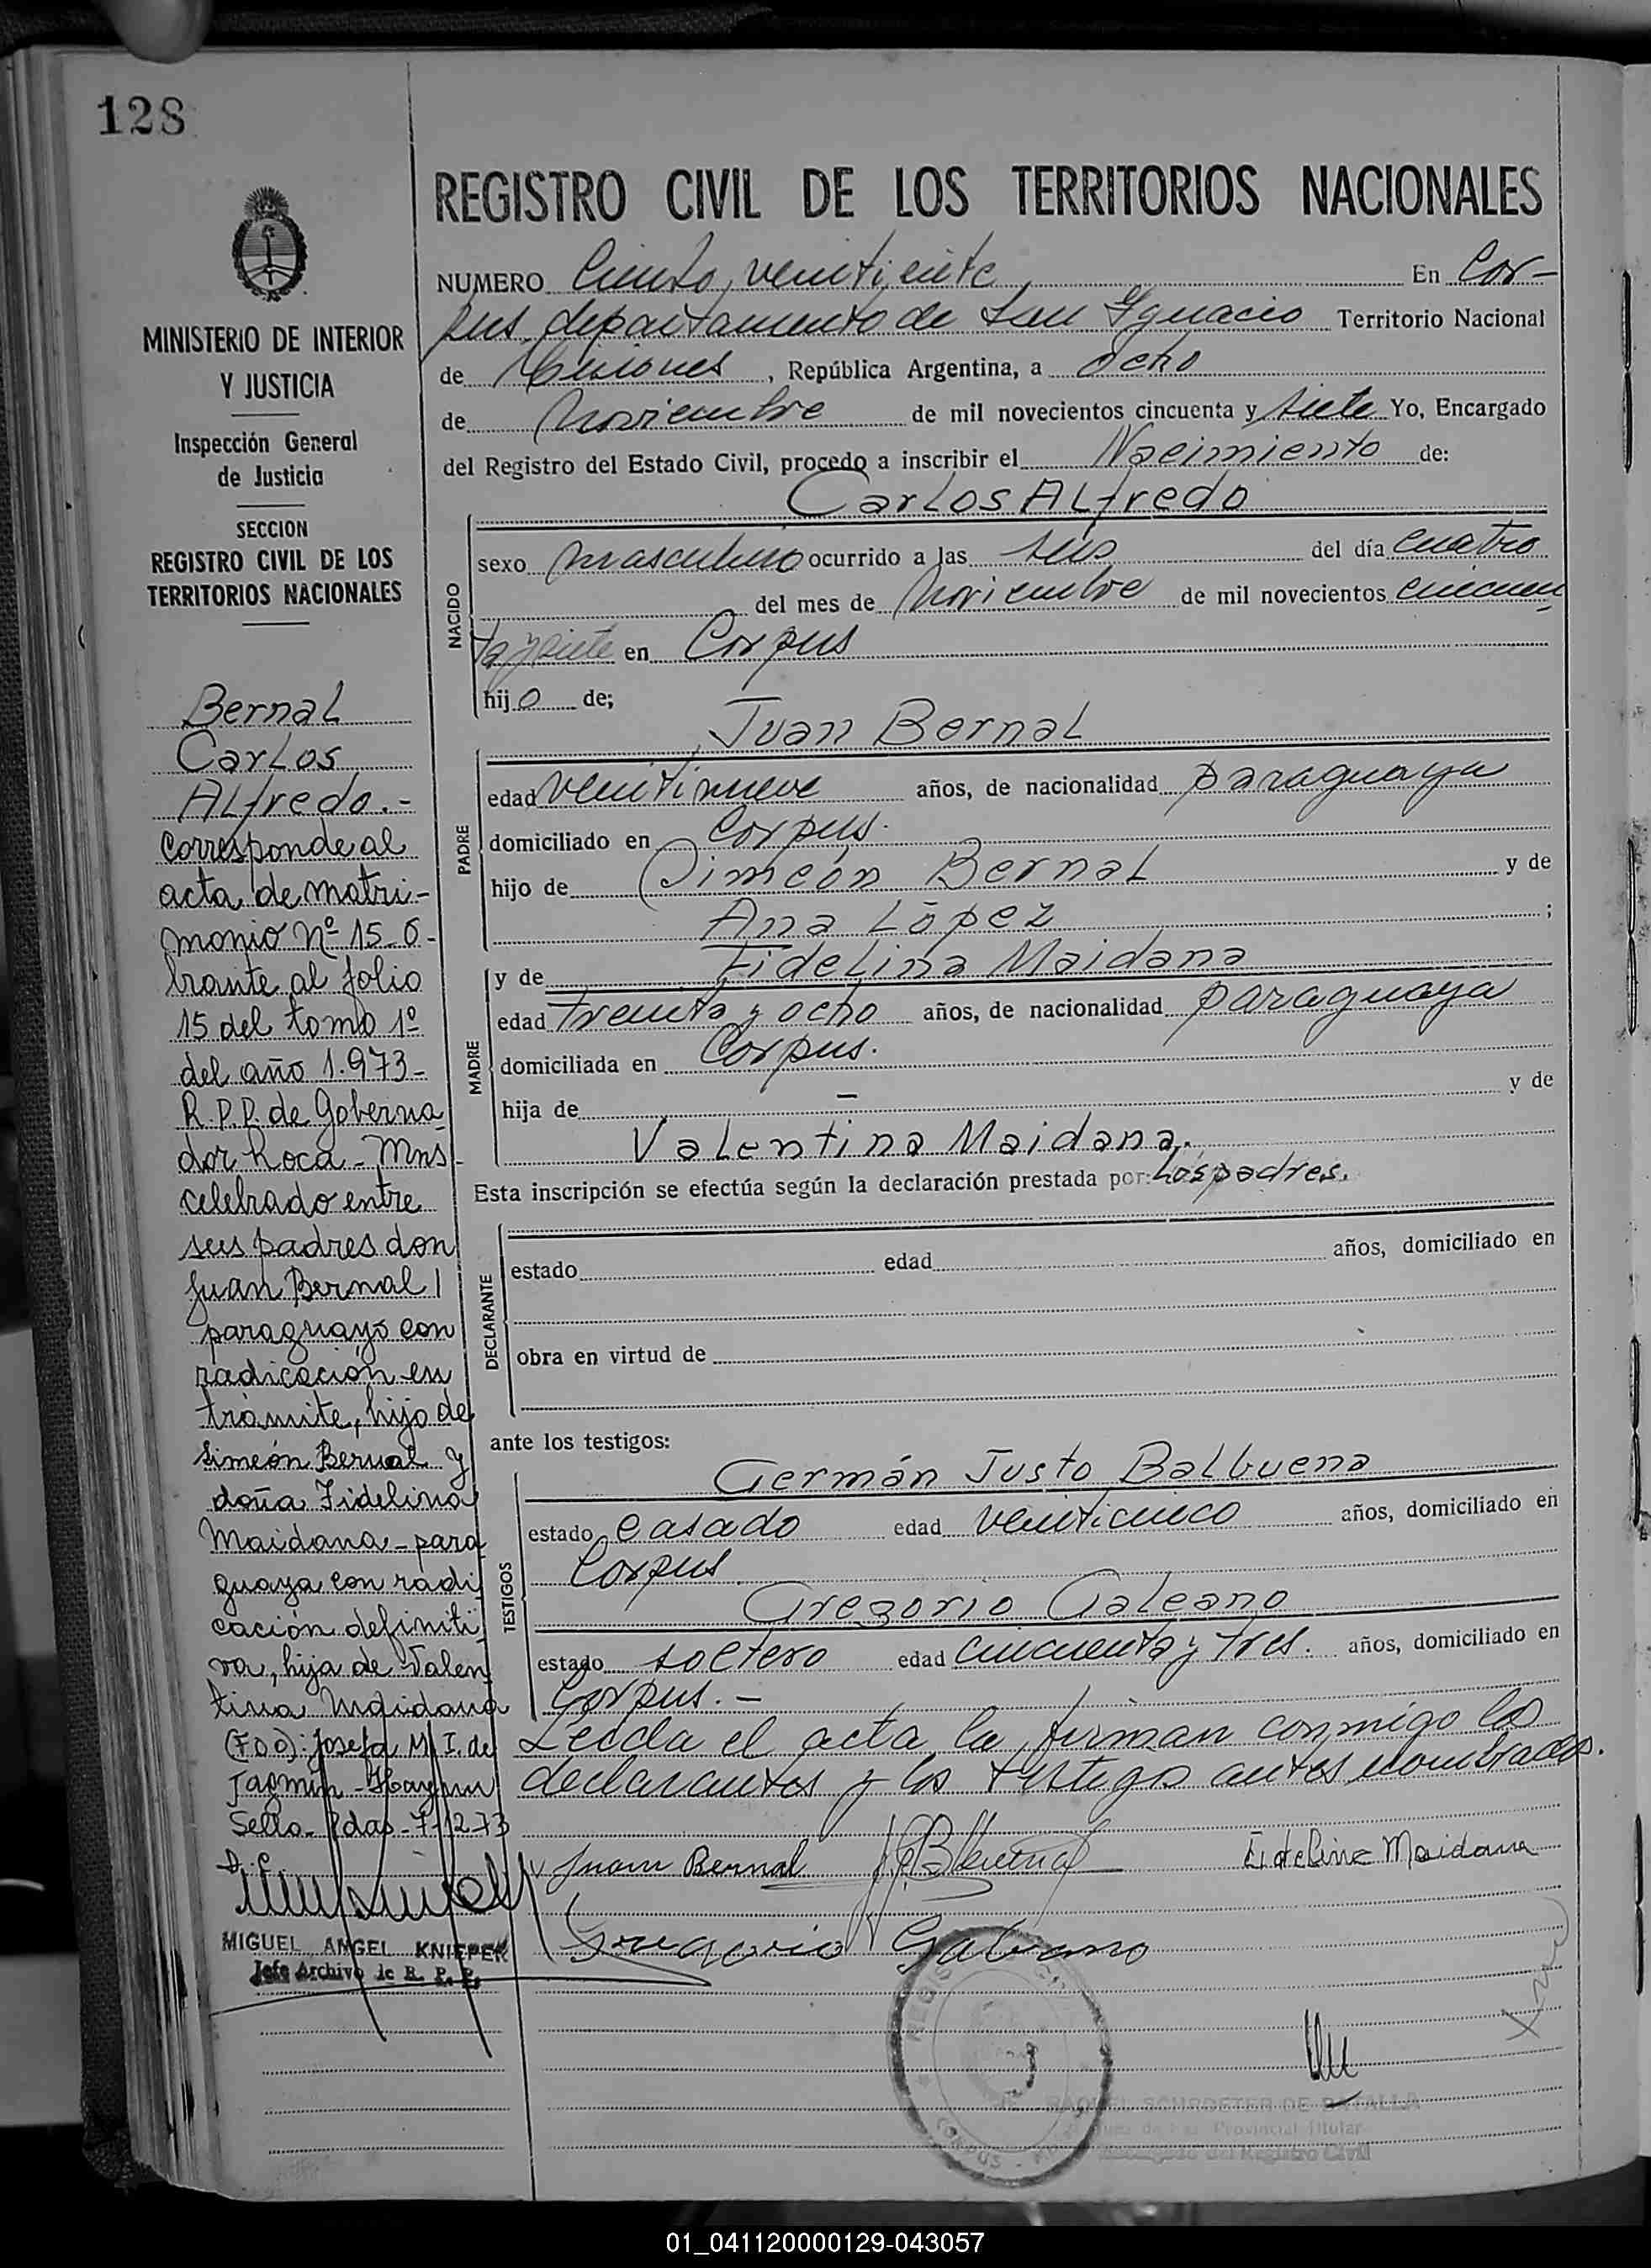 128
MINISTERIO DE INTERIOR
Y JUSTICIA
Inspección General
de Justicia
SECCION
REGISTRO CIVIL DE LOS
TERRITORIOS NACIONALES
Bernal
Carlos
Alfredo.-
Corresponde al
acta de matri-
monio Nº 15 - o-
brante al folio
15 del tomo 1º
del año 1.973-
R.P.P. de Goberna
dor Roca - Mns-
celebrado entre
sus padres don
Juan Bernal
paraguayo con
radicación en
trámite, hijo de
Simeón Bernal y
doña Fidelina
Maidana - para
guaya con radi
cación definiti
va, hija de Valen
tina Maidana
(FDO): Josefa M. I. de
Sello - Pdas - 7-12-73
MIGUEL ANGEL KNIEPER
Jefe Archivo de R. P. P.
REGISTRO CIVIL DE LOS TERRITORIOS NACIONALES
NUMERO Ciento veintisiete En Cor-
pus departamento de San Ignacio Territorio Nacional
de Misiones, República Argentina, a ocho
de Noviembre de mil novecientos cincuenta y siete Yo, Encargado
del Registro del Estado Civil, procedo a inscribir el Nacimiento de:
Carlos Alfredo
NACIDO
sexo masculino ocurrido a las seis del día cuatro
del mes de Noviembre de mil novecientos cincuen
ta y siete en Corpus
hijo de;
Juan Bernal
PADRE
edad veintinueve años, de nacionalidad paraguaya
domiciliado en Corpus.
hijo de Simeón Bernal y de
Ana López ;
MADRE
y de Fidelina Maidana
edad treinta y ocho años, de nacionalidad paraguaya
domiciliada en Corpus.
hija de — y de
Valentina Maidana.
Esta inscripción se efectúa según la declaración prestada por: Los padres.
DECLARANTE
estado edad años, domiciliado en
obra en virtud de
ante los testigos:
TESTIGOS
Germán Justo Balbuena
estado casado edad veinticinco años, domiciliado en
Corpus
Gregorio Galeano
estado soltero edad cincuenta y tres. años, domiciliado en
Corpus.-
Leída el acta la firman conmigo los
declarantes y los testigos antes nombrados.
Juan Bernal Fideline Maidana
Gregorio Galeano
RAQUEL SCHROETER DE BATALLA
Encargado del Registro Civil
01_041120000129-043057